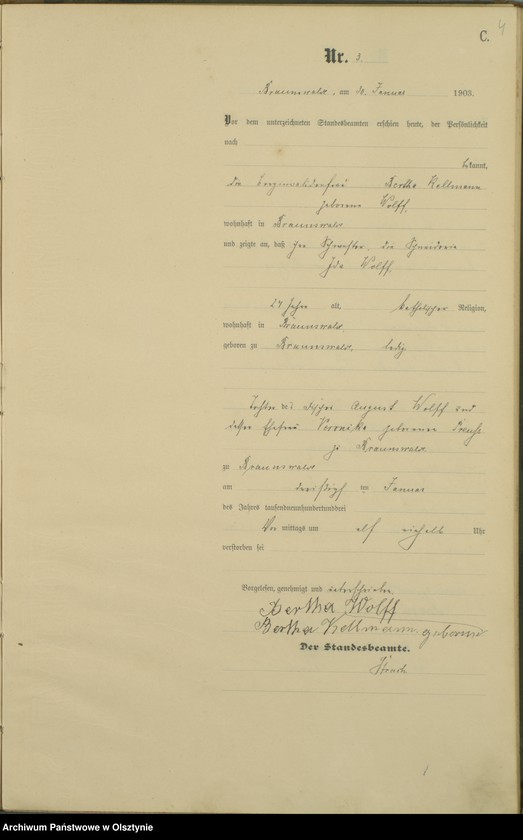 4
C.
Nr. 3
Braunswalde, am 20. Januar 1903.
Vor dem unterzeichneten Standesbeamten erschien heute, der Persönlichkeit
nach
bekannt,
die Bertha Kellmann
geborene Wolff,
wohnhaft in Braunswalde
und zeigte an, daß ihre Schwester, die Schneiderin
Ida Wolff,
24 Jahre alt, katholischer Religion,
wohnhaft in Braunswalde
geboren zu Braunswalde, ledig
Tochter des August Wolff und
dessen Ehefrau geborenen
zu Braunswalde
zu Braunswalde
am ten Januar
des Jahres tausendneunhundertunddrei
Vor mittags um elf einhalb Uhr
verstorben sei
Vorgelesen, genehmigt und unterschrieben
Bertha Wolff
Bertha Kellmann geborene
Der Standesbeamte.
Archiwum Państwowe w Olsztynie